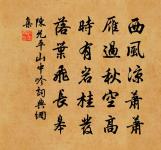 西風涼蕭蕭
雁過秋空高
時有岩桂發
落葉飛長皋
陳允平山中吟詞典網
集